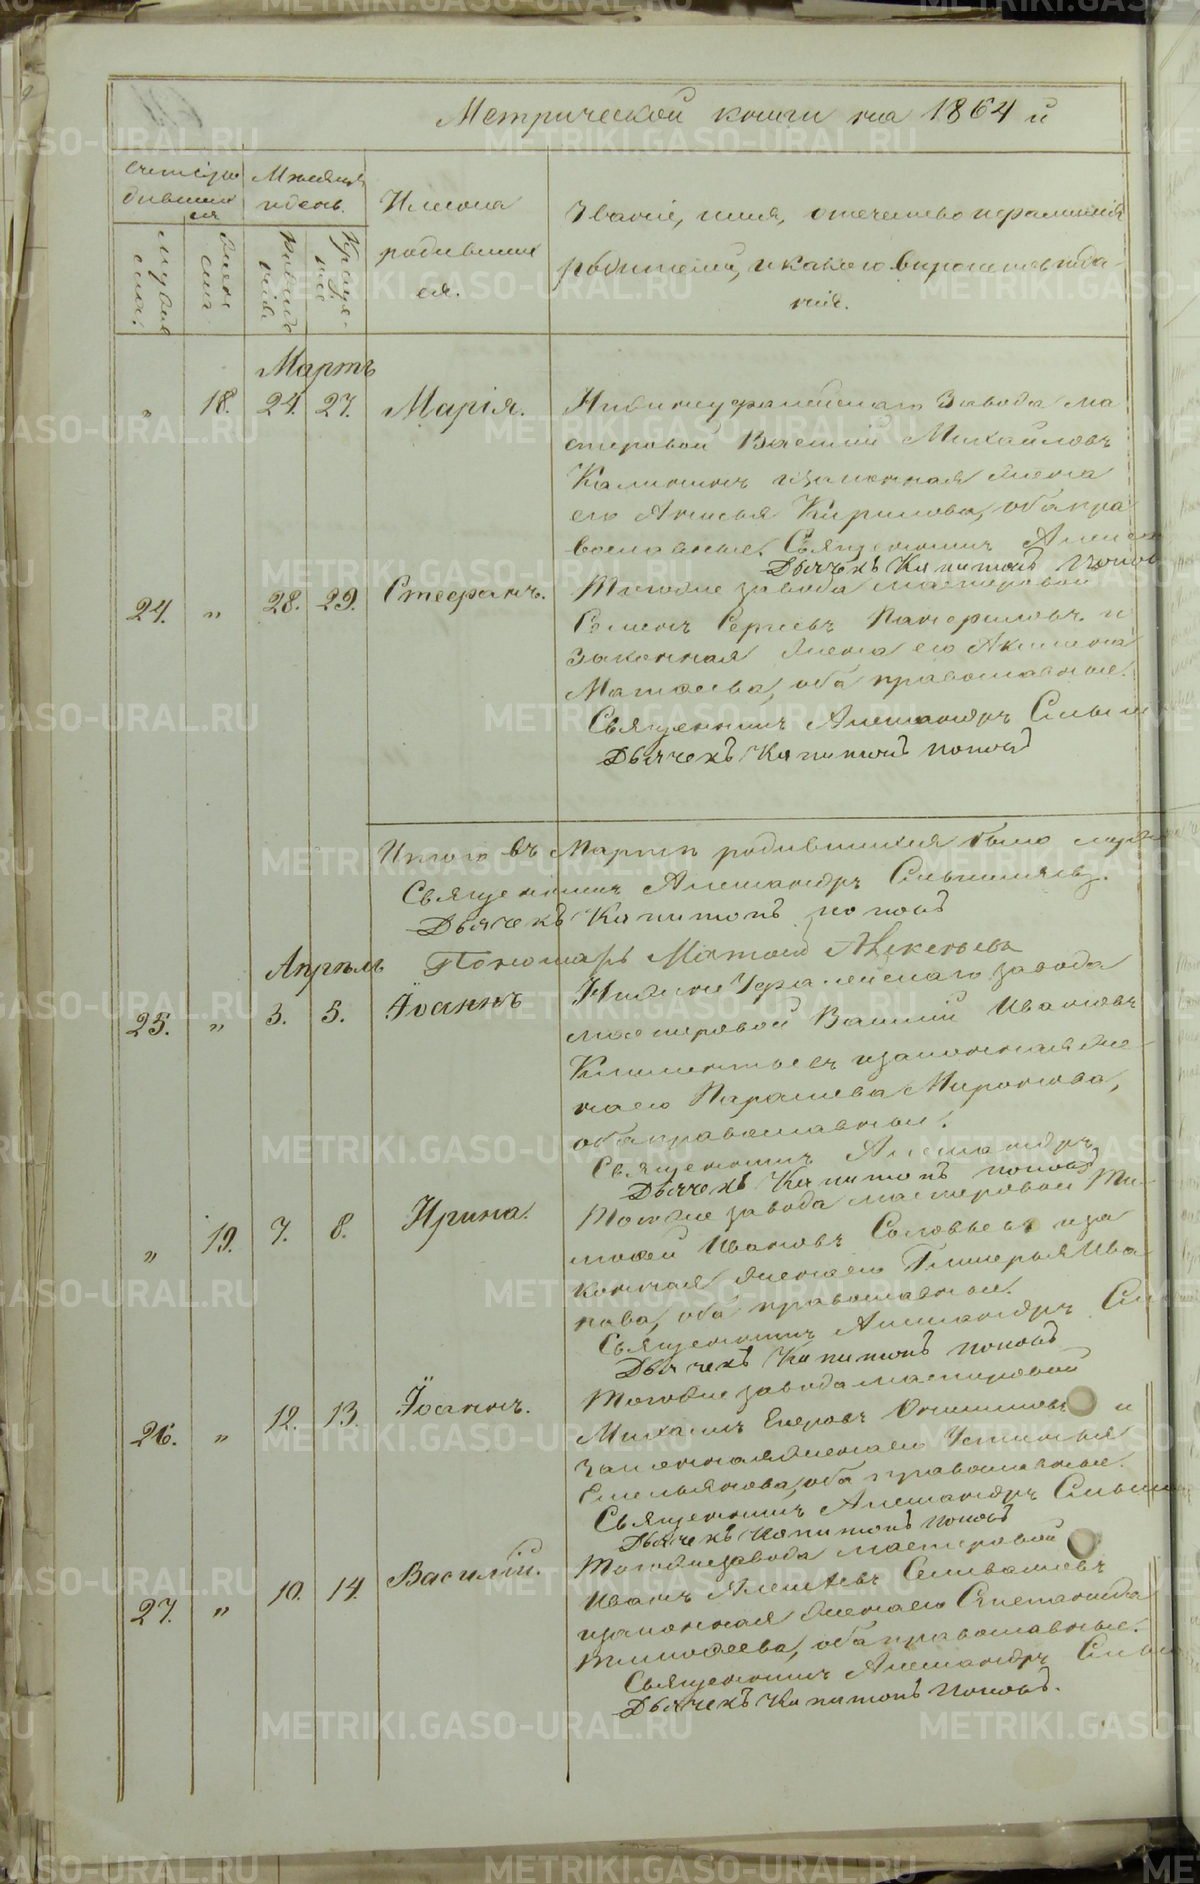 Метрической книги на 1864 й
Счетъ ро
дивших
ся
Мѣсяцъ
и день.
Имена
родивших
ся.
Званіе, имя, отечество и фамилія
родителей, и какого вѣроисповѣда-
нія.
Мужеска
Женска
Рожденія
Крещенія
Мартъ
" 18. 24. 27. Марія.
Нижнеуфалейскаго Завода ма
стеровой Василій Михайловъ
Калининъ и законная жена
его Анисья Кирилова, оба пра
вославные. Священникъ
Дьячекъ Капитонъ Попов
24. " 28. 29. Стефанъ.
Тогоже завода мастеровой
Семенъ Сергѣевъ и
Законная жена его Акилина
Матвеева, оба православные.
Священникъ Александръ
Дьячекъ Капитонъ Поповъ
Итого въ Мартѣ родившихся было
Священникъ Александръ
Дьячекъ Капитонъ Поповъ
Пономарь
Апрѣль
25. " 3. 5. Іоаннъ
Нижне Уфалейскаго завода
мастеровой Василій Ивановъ
Климентьевъ и законная же-
на его Параскева Миронова,
оба православные.
Священникъ Александръ
Дьячекъ Капитонъ Поповъ
" 19. 7. 8. Ирина.
Тогоже завода мастеровой Ти-
мофей Ивановъ Соловьевъ и за
конная жена его Гликерья Ива
нова, оба православные.
Священникъ Александръ
Дьячекъ Капитонъ Поповъ
26. " 12. 13. Іоаннъ.
Тогоже завода мастеровой
Михаилъ Егоровъ и
Законная жена его Устинья
Емельянова, оба православные.
Священникъ Александръ
Дьячекъ Капитонъ Поповъ
27. " 10. 14. Василій.
Тогоже завода мастеровой
Иванъ Алексѣевъ Селивановъ
и законная жена его Степанида
Тимофеева, оба православные.
Священникъ Александръ
Дьячекъ Капитонъ Поповъ.
METRIKI.GASO-URAL.RU